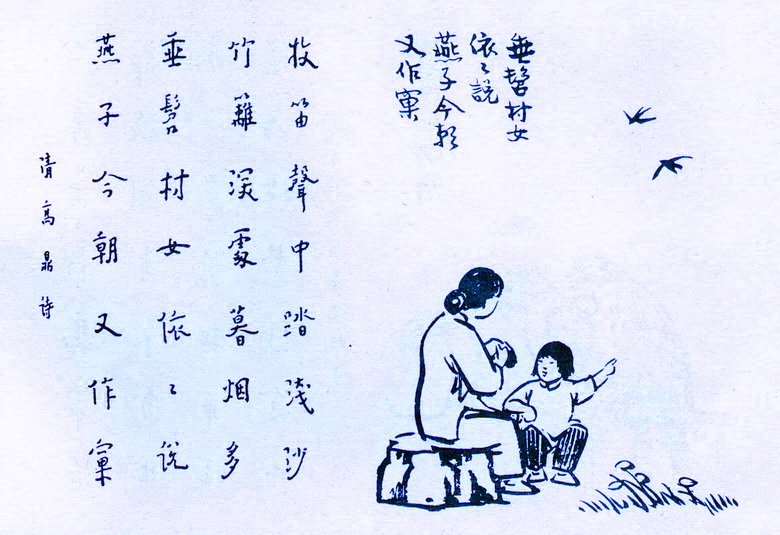 垂髫村女
依〻說
燕子今朝
又作窠
牧笛聲中踏淺沙
竹籬深處暮烟多
垂髫村女依〻說
燕子今朝又作窠
清高鼎诗